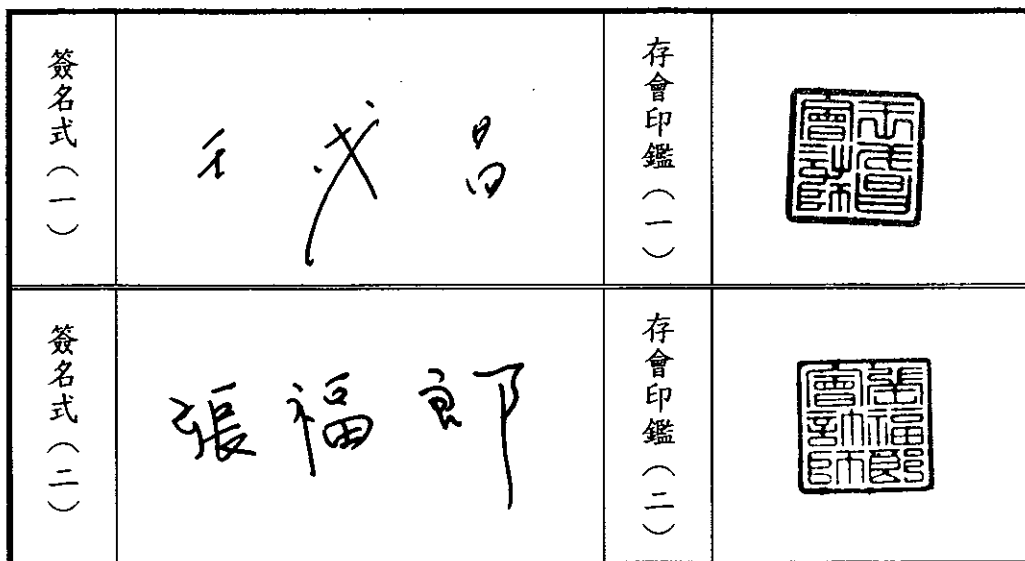 簽名式（一）
王戊昌
存會印鑑（一）
王戊昌會計師
簽名式（二）
張福郎
存會印鑑（二）
張福郎會計師